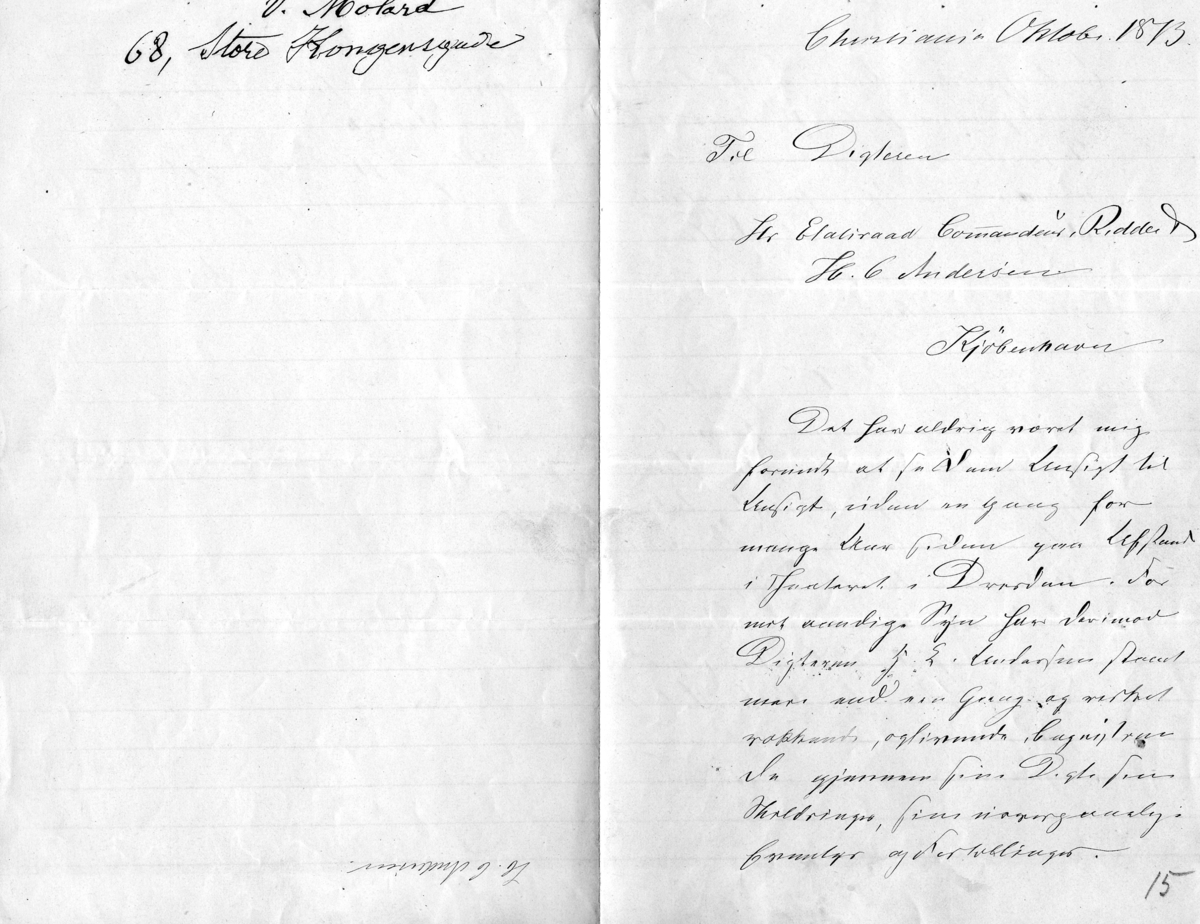 V. Molard
68, Store Kongensgade
H. C Andersen.
Christiania Oktobr. 1873.
Til Digteren
Hr Etatsraad Com̄andeur, Ridder
H. C Andersen
Kjöbenhavn
Det har aldrig været mig
forundt at se Dem Ansigt til
Ansigt, uden en Gang for
mange Aar siden paa Afstand
i Theateret i Dresden. For
mit aandige Syn har derimod
Digteren H. C. Andersen staaet
mere end een Gang og virket
vækkende, oplivende, begeistren
de gjennem sine Digte sine
Skildringer, sine uovergaaelige
Eventyr og Fortællinger.
15